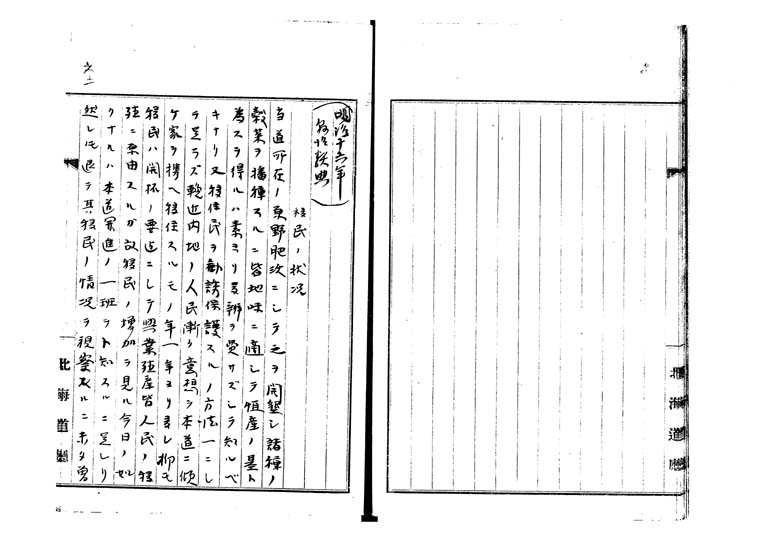 明治十六年
移民ノ状况
当道所在ノ原野肥沃ニシテ之ヲ開墾シ諸種ノ
穀菜ヲ播種スルニ皆地味ニ適シテ恒産ノ基ト
為スヲ得ルハ素ヨリ多辨ヲ要サズシテ知ルベ
キナリ又移住民ヲ勧誘保護スルノ方法一ニシ
テ足ラズ輓近内地ノ人民漸ク意想ヲ本道ニ傾
ケ家ヲ携ヘ移住スルモノ年一年ヨリ多シ抑モ
移民ハ開拓ノ要途ニシテ興業殖産皆人民ノ移
殖ニ原由スルガ故移民ノ増加ヲ見ル今日ノ如
クナルハ本道累進ノ一班ヲト知スルニ足レリ
然レ氏退テ其移民ノ情况ヲ視察スルニ未タ曽
北海道廳
北海道廳